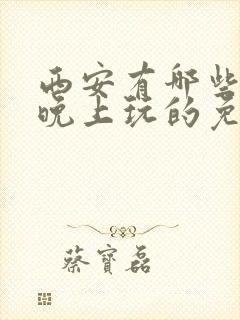 西安有哪些
晚上玩的免
蔡寶磊